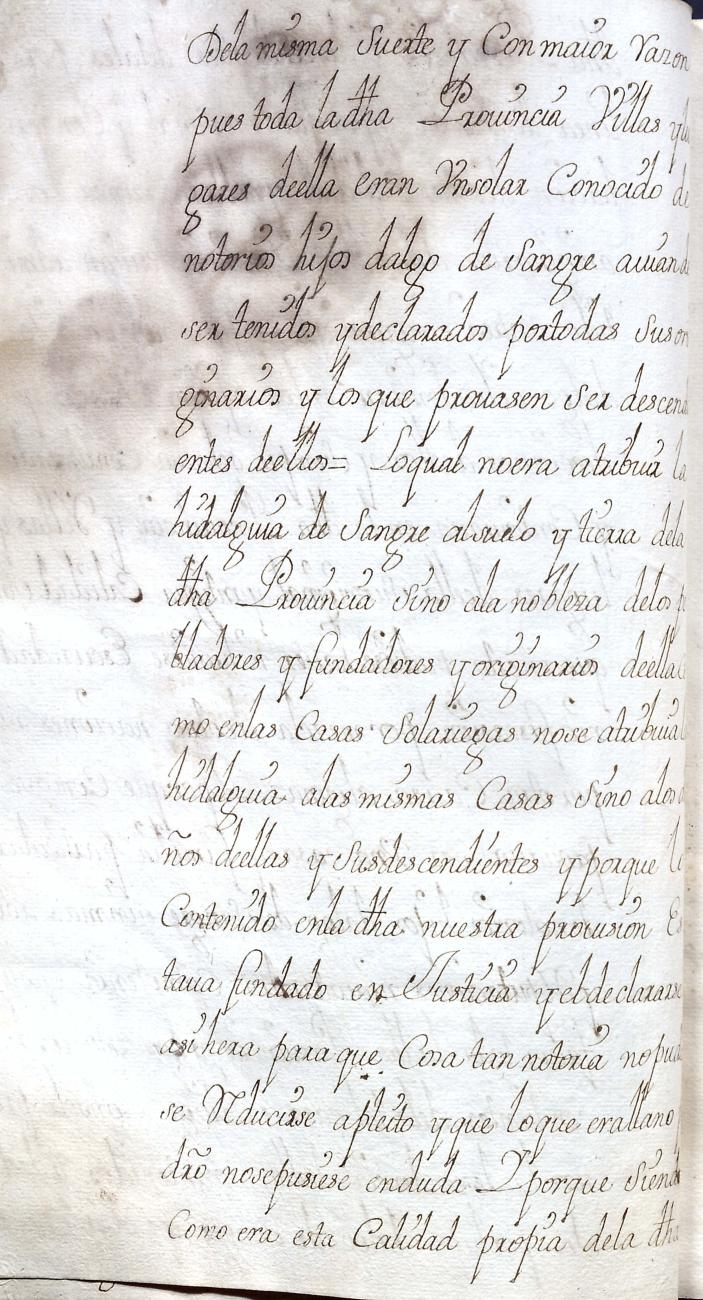 Dela misma Suerte y Con maior razon
pues toda la dha Prouincia Villas y lu
gares deella eran Vnsolar Conocido de
notorios hijos dalgo de Sangre auian de
ser tenidos y declarados por todas Sus ori
ginarios y los que prouasen Ser descendi
entes deellos= Loqual noera atribuir la
hidalguia de Sangre alsuelo y tierra dela
dha Prouincia Sino ala nobleza delos po
bladores y fundadores y originarios deella Co
mo enlas Casas Solariegas nose atribuia la
hidalguia alas mismas Casas Sino alos due
ños deellas y Susdescendientes y porque lo
Contenido enla dha nuestra prouision Es
taua fundado en Justicia y eldeclararse
asi hera para que Cosa tan notoria no pudie
se Nducirse apleito y que loque erallano
dro nosepusiese enduda Y porque Siendo
Como era esta Calidad propia dela dha